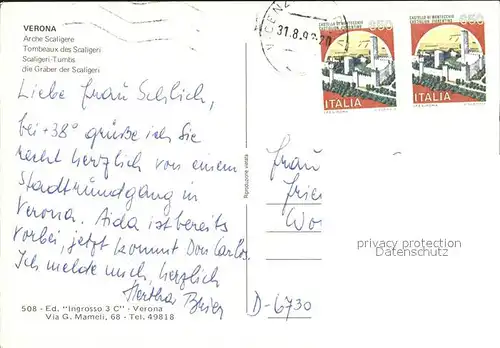 VERONA
Arche Scaligere
Tombeaux des Scaligeri
Scaligeri-Tumbs
die Gräber der Scaligeri
Liebe Frau
bei +38° grüße ich Sie
recht herzlich von einem
Stadtrundgang in
Verona. Aida ist bereits
vorbei, jetzt kommt Don Carlos.
Ich melde mich, herzlich
Hertha
508 - Ed. "Ingrosso 3 C" - Verona
Via G. Mameli, 68 - Tel. 49818
Riproduzione vietata
VICENZ
31.8.9
CASTELLO DI MONTECCHIO
CASTIGLION FIORENTINO
650
ITALIA
CASTELLO DI MONTECCHIO
CASTIGLION FIORENTINO
650
ITALIA
Frau
Frie
Wo
privacy protection
Datenschutz
D-6730